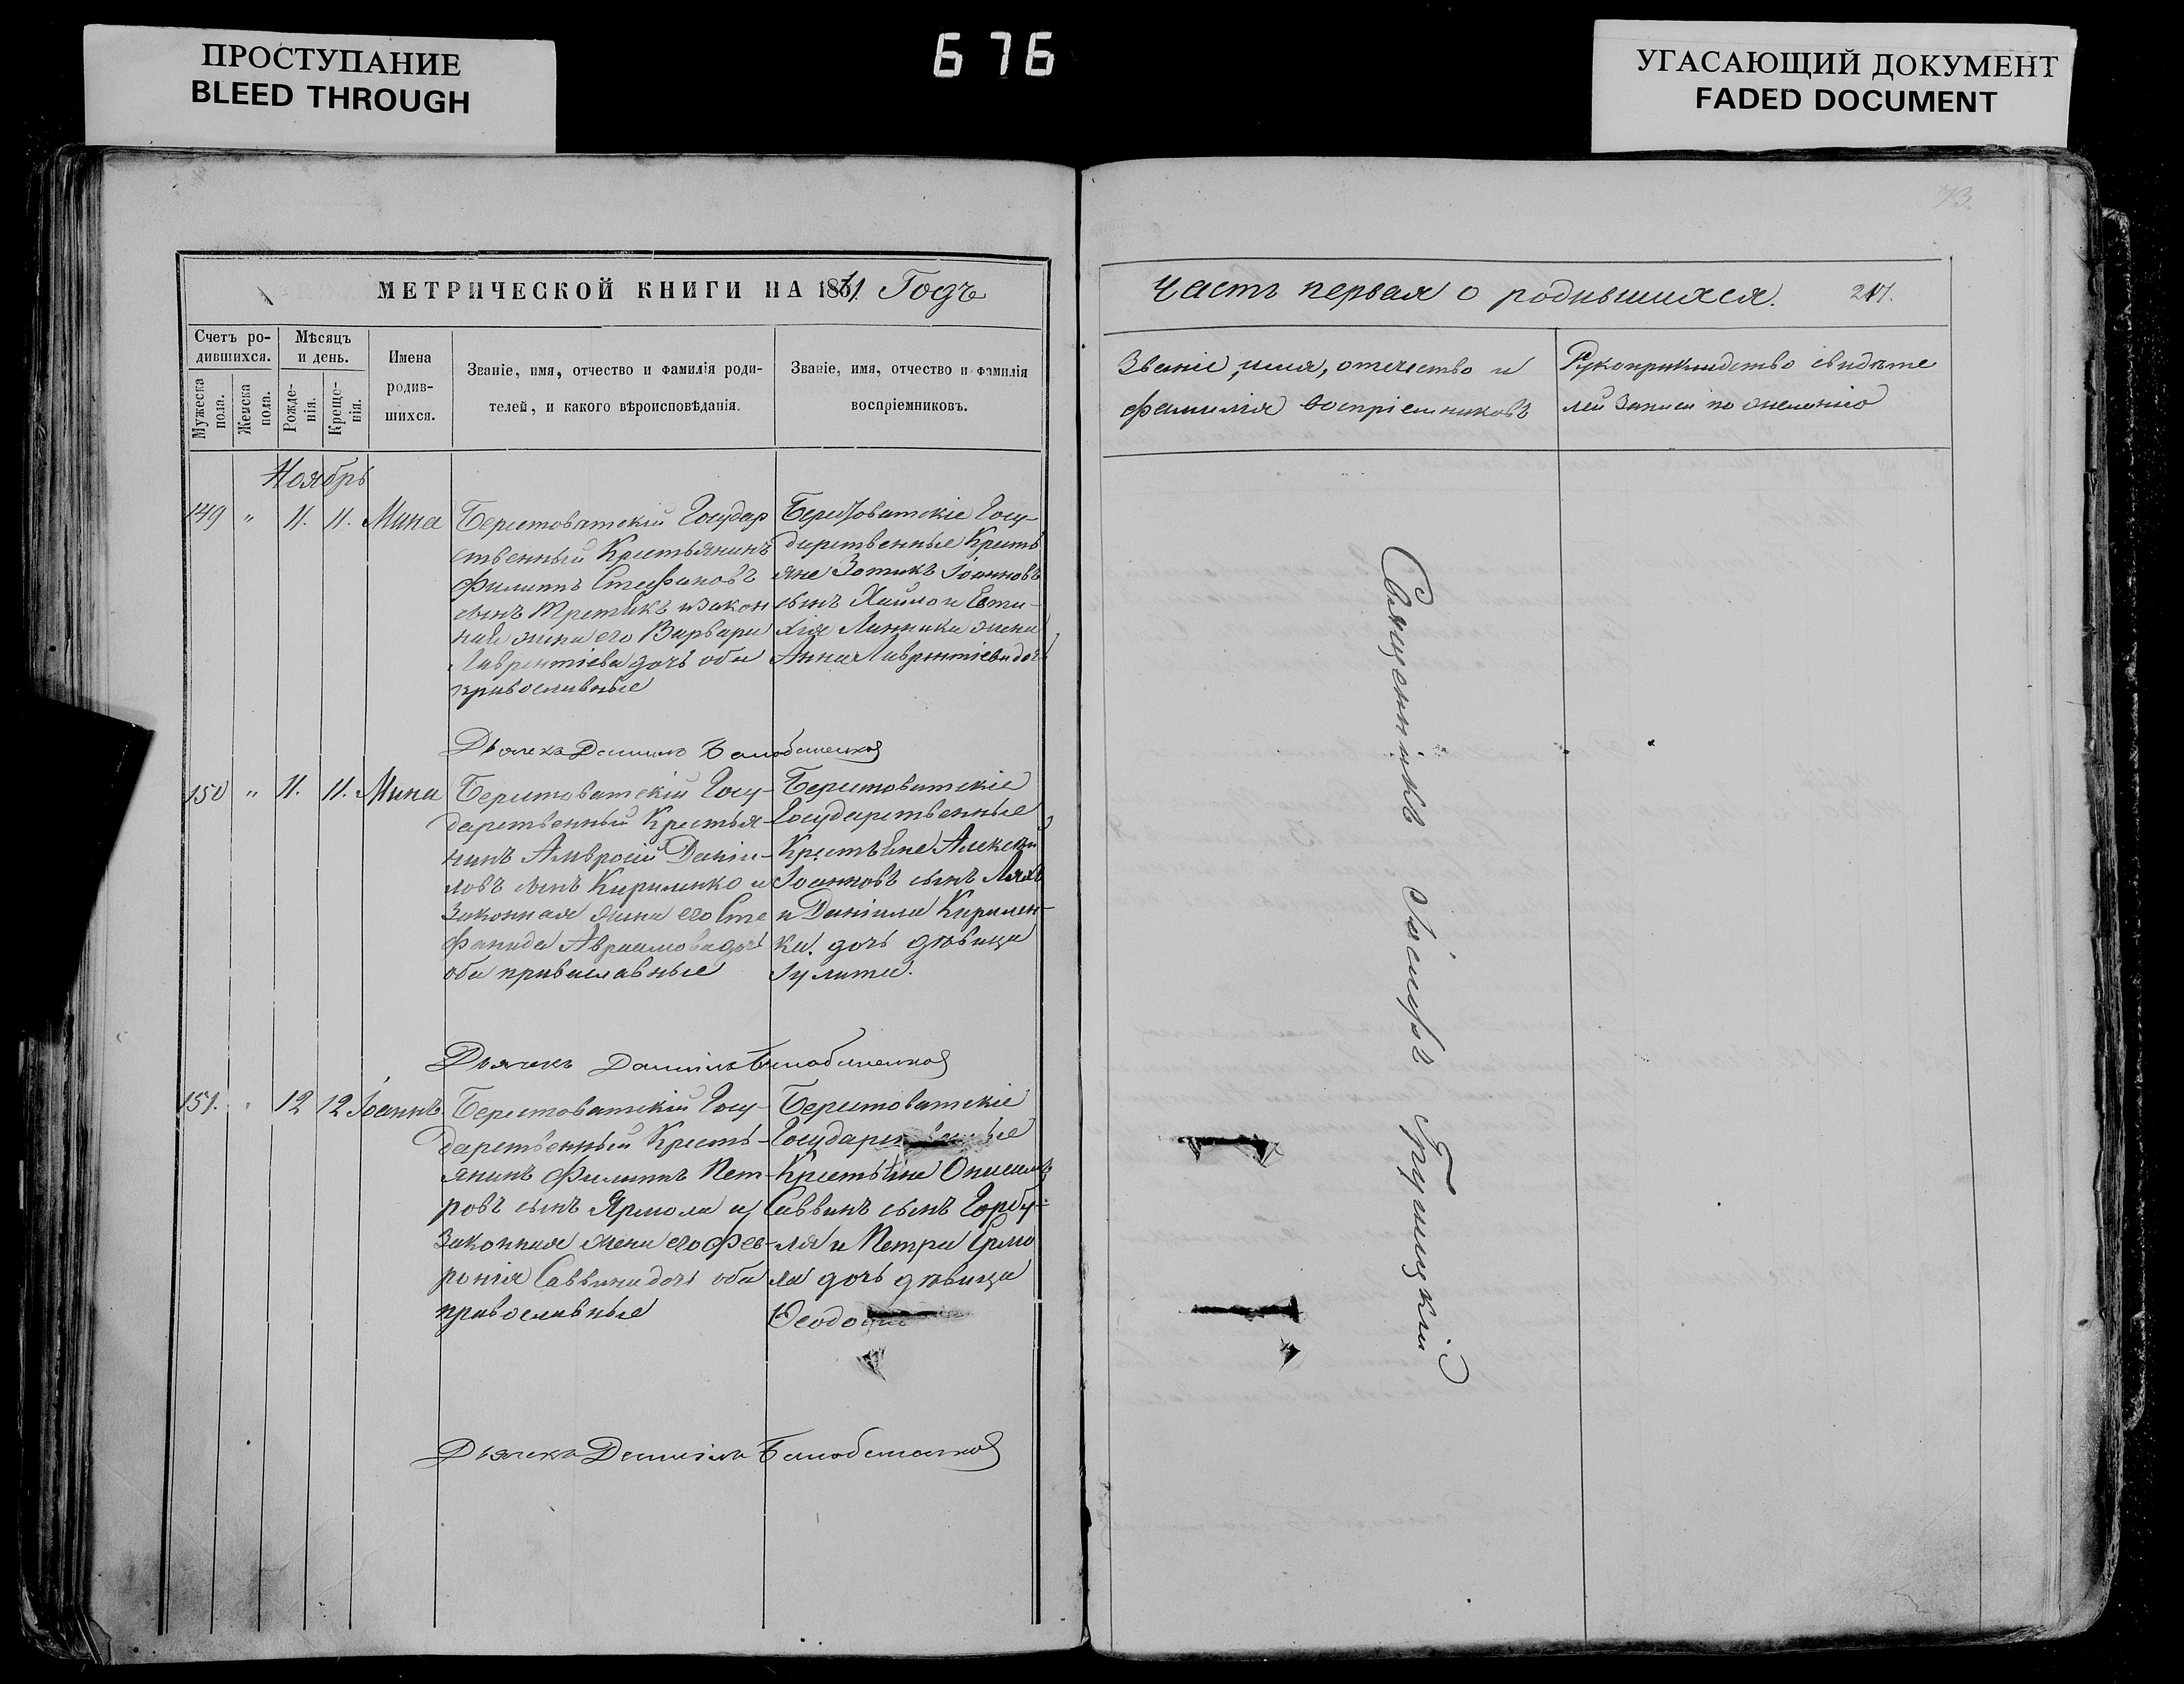 ПРОСТУПАНИЕ
BLEED THROUGH
676
УГАСАЮЩИЙ ДОКУМЕНТ
FADED DOCUMENT
МЕТРИЧЕСКОЙ КНИГИ НА 1861. Годъ
Счетъ ро-
дившихся.
Мужеска
пола.
Женска
пола.
Мѣсяцъ
и день.
Рожде-
нія.
Креще-
нія.
Имена
родив-
шихся.
Званіе, имя, отчество и фамилія роди-
телей, и какого вѣроисповѣданія.
Званіе, имя, отчество и фамилія
воспріемниковъ.
Ноябрь
149 " 11. 11. Мина
Берестоватскій Государ
ственный Крестьянинъ
Филиппъ Стефановъ
сынъ Третякъ и закон
ная жена его Варвара
Лаврентіева дочь оба
православные
Берестоватскіе Госу-
дарственные Кресть
яне Зотикъ Іоанновъ
сынъ Хайло и Евти-
хія Линника жена
Анна Лаврентіева доч
Дьячекъ Даніилъ
150 " 11. 11. Мина
Берестоватскій Госу-
дарственный Крестья-
нинъ Амвросій Даніи-
ловъ сынъ Кириленко и
Законная жена его Сте
фанида Авраамова дочь
оба православные
Берестоватскіе
Государственные
Крестьяне Алексѣй
Іоанновъ сынъ Ляхъ
и Даніила Кирилен-
ка дочь дѣвица
Іулита.
Дьячекъ Даніилъ
151. " 12 12 Іоаннъ
Берестоватскій Госу-
дарственный Кресть-
янинъ Филиппъ Пет-
ровъ сынъ Ярмола и
Законная жена его Фев-
ронія Саввина дочь оба
православные
Берестоватскіе
Государственные
Крестьяне Онисимъ
Саввинъ сынъ Горбу-
ля и Петра Ярмо
ла дочь дѣвица
Ѳеодосія
Дьячекъ Даніилъ
Часть первая о родившихся. 217.
Званіе, имя, отчество и
фамилія воспріемниковъ
Рукоприкладство свидѣте
лей записи по желанію
Священникъ Іаковъ